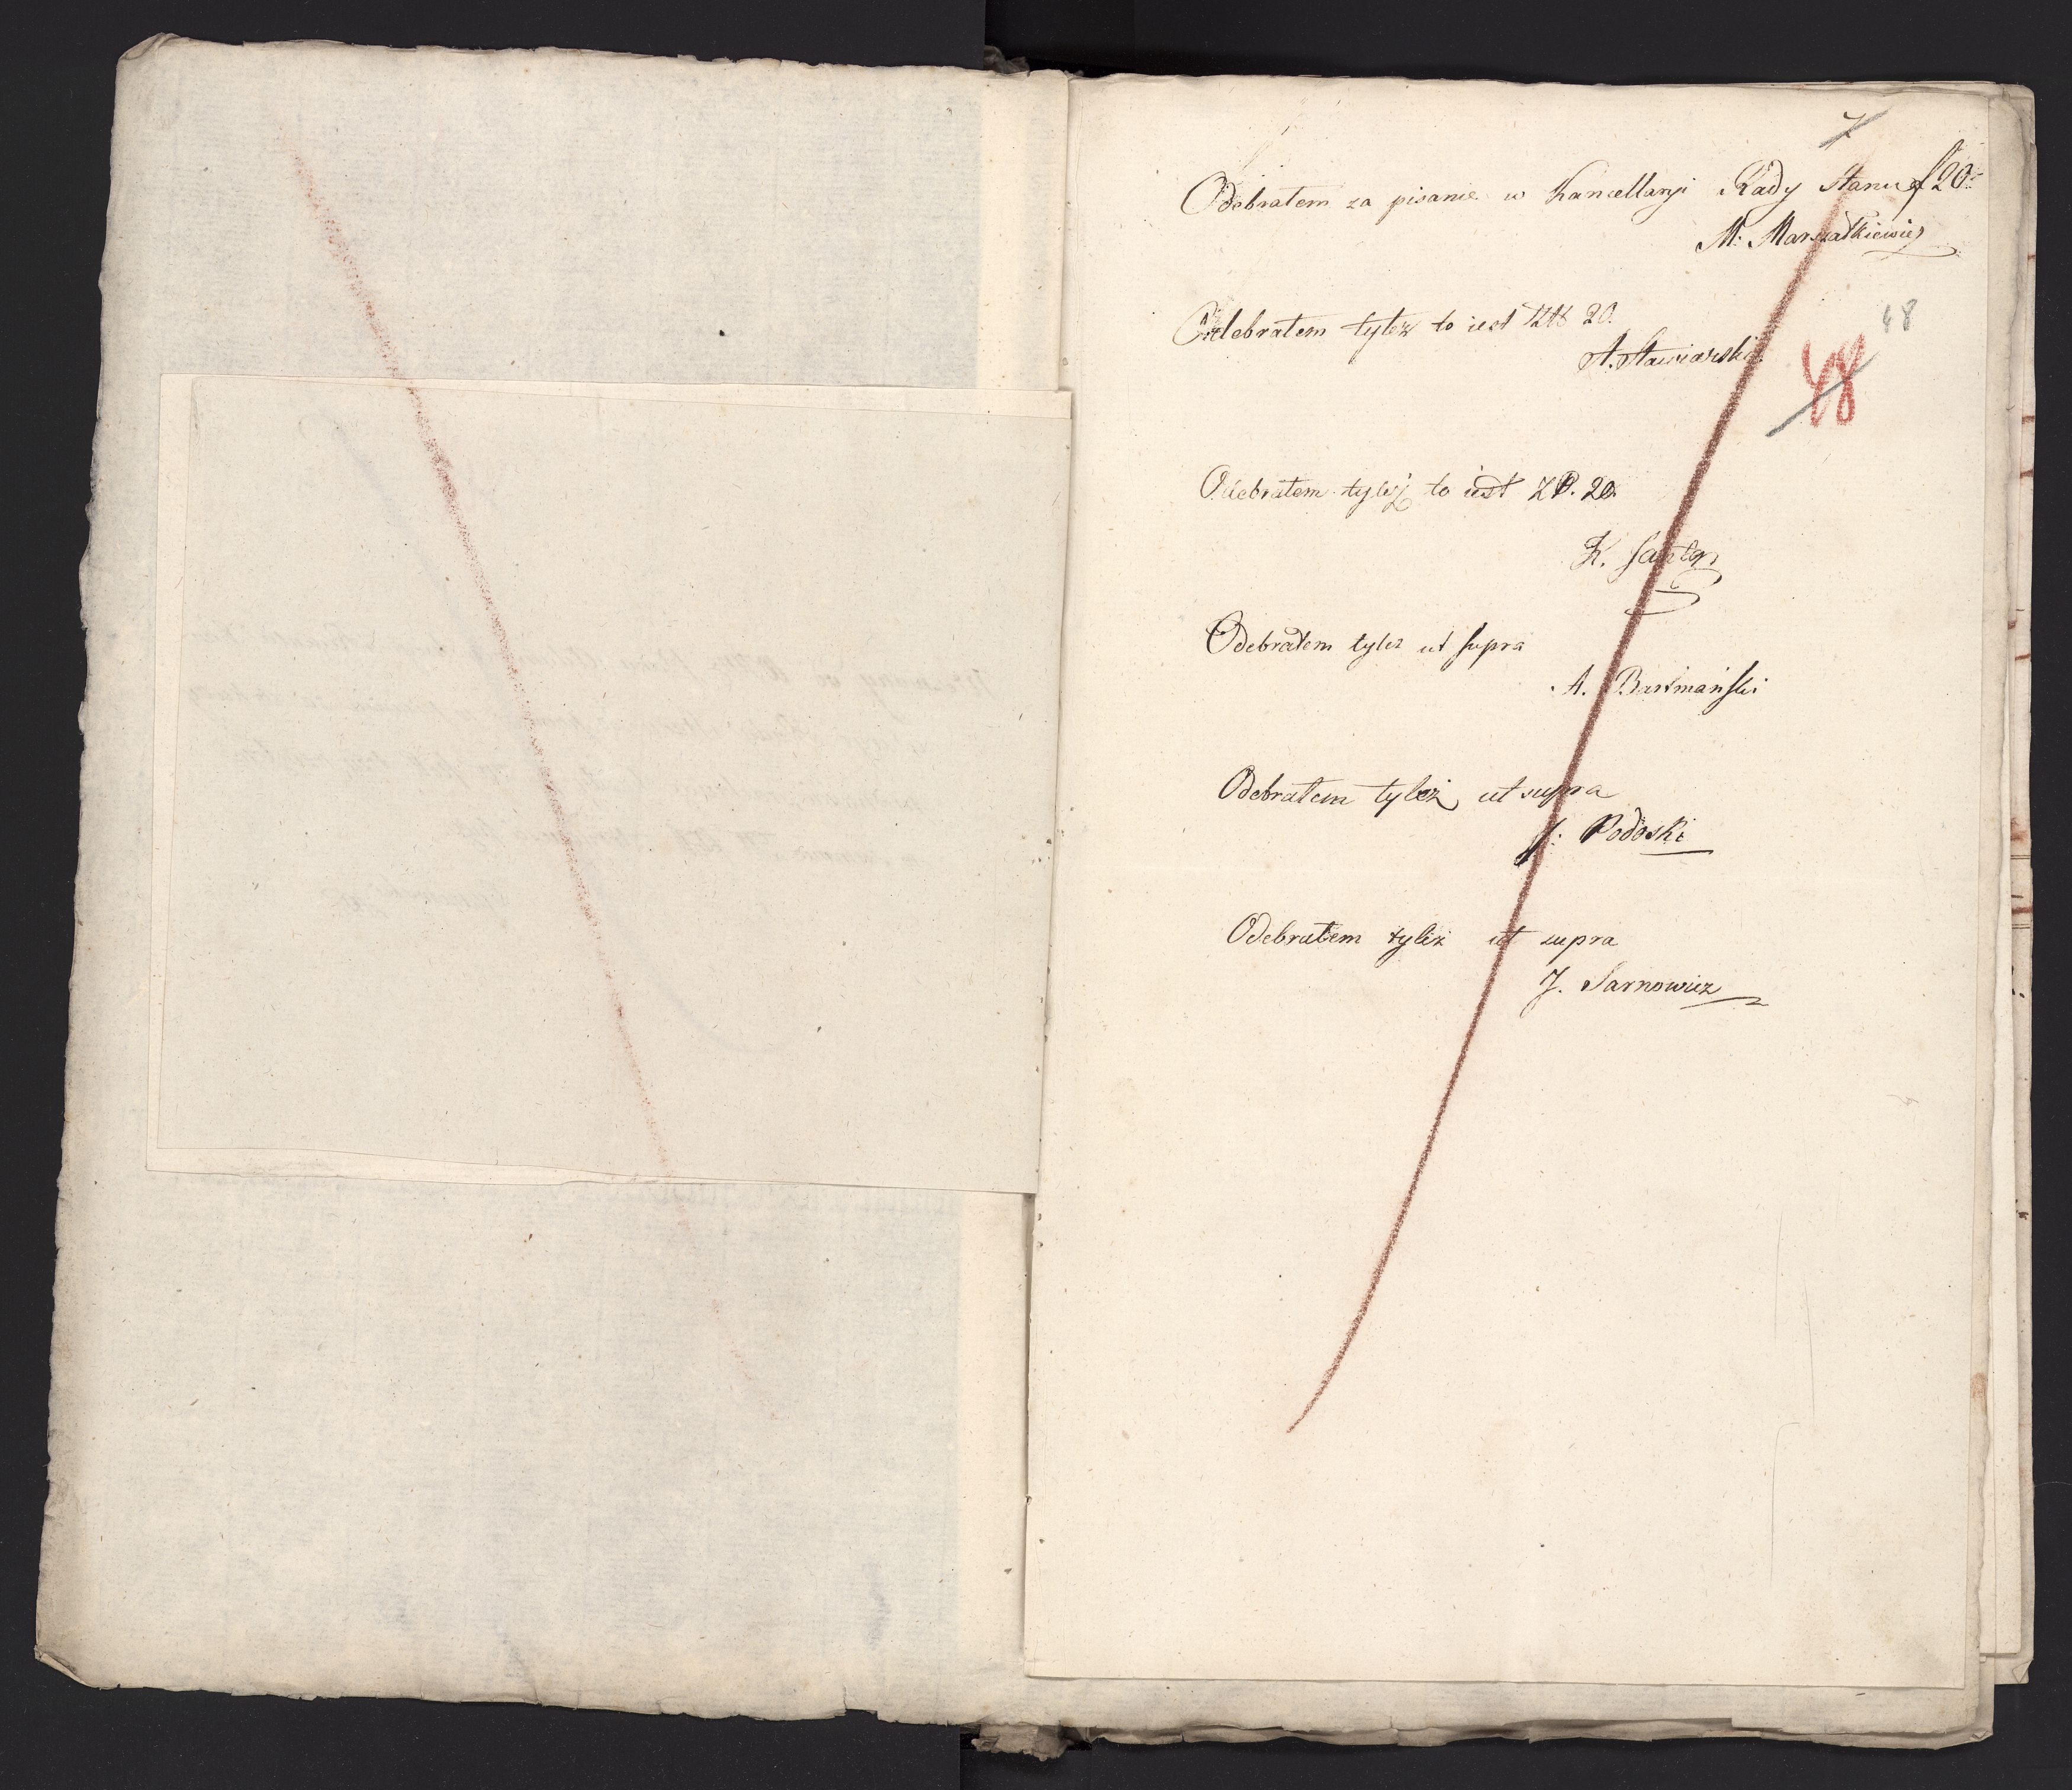 7
Odebrałem za pisanie w Kancellaryi Rady Stanu f 20
M. Marszałkiewicz
Odebrałem tyleż to iest 20.
A. Stawiarski
48
48
Odebrałem tyleż to iest ZP. 20.
K.
Odebrałem tyleż ut supra
A. Bartmański
Odebrałem tyleż ut supra
J. Podoski
Odebrałem tyleż ut supra
J. Sarnowicz